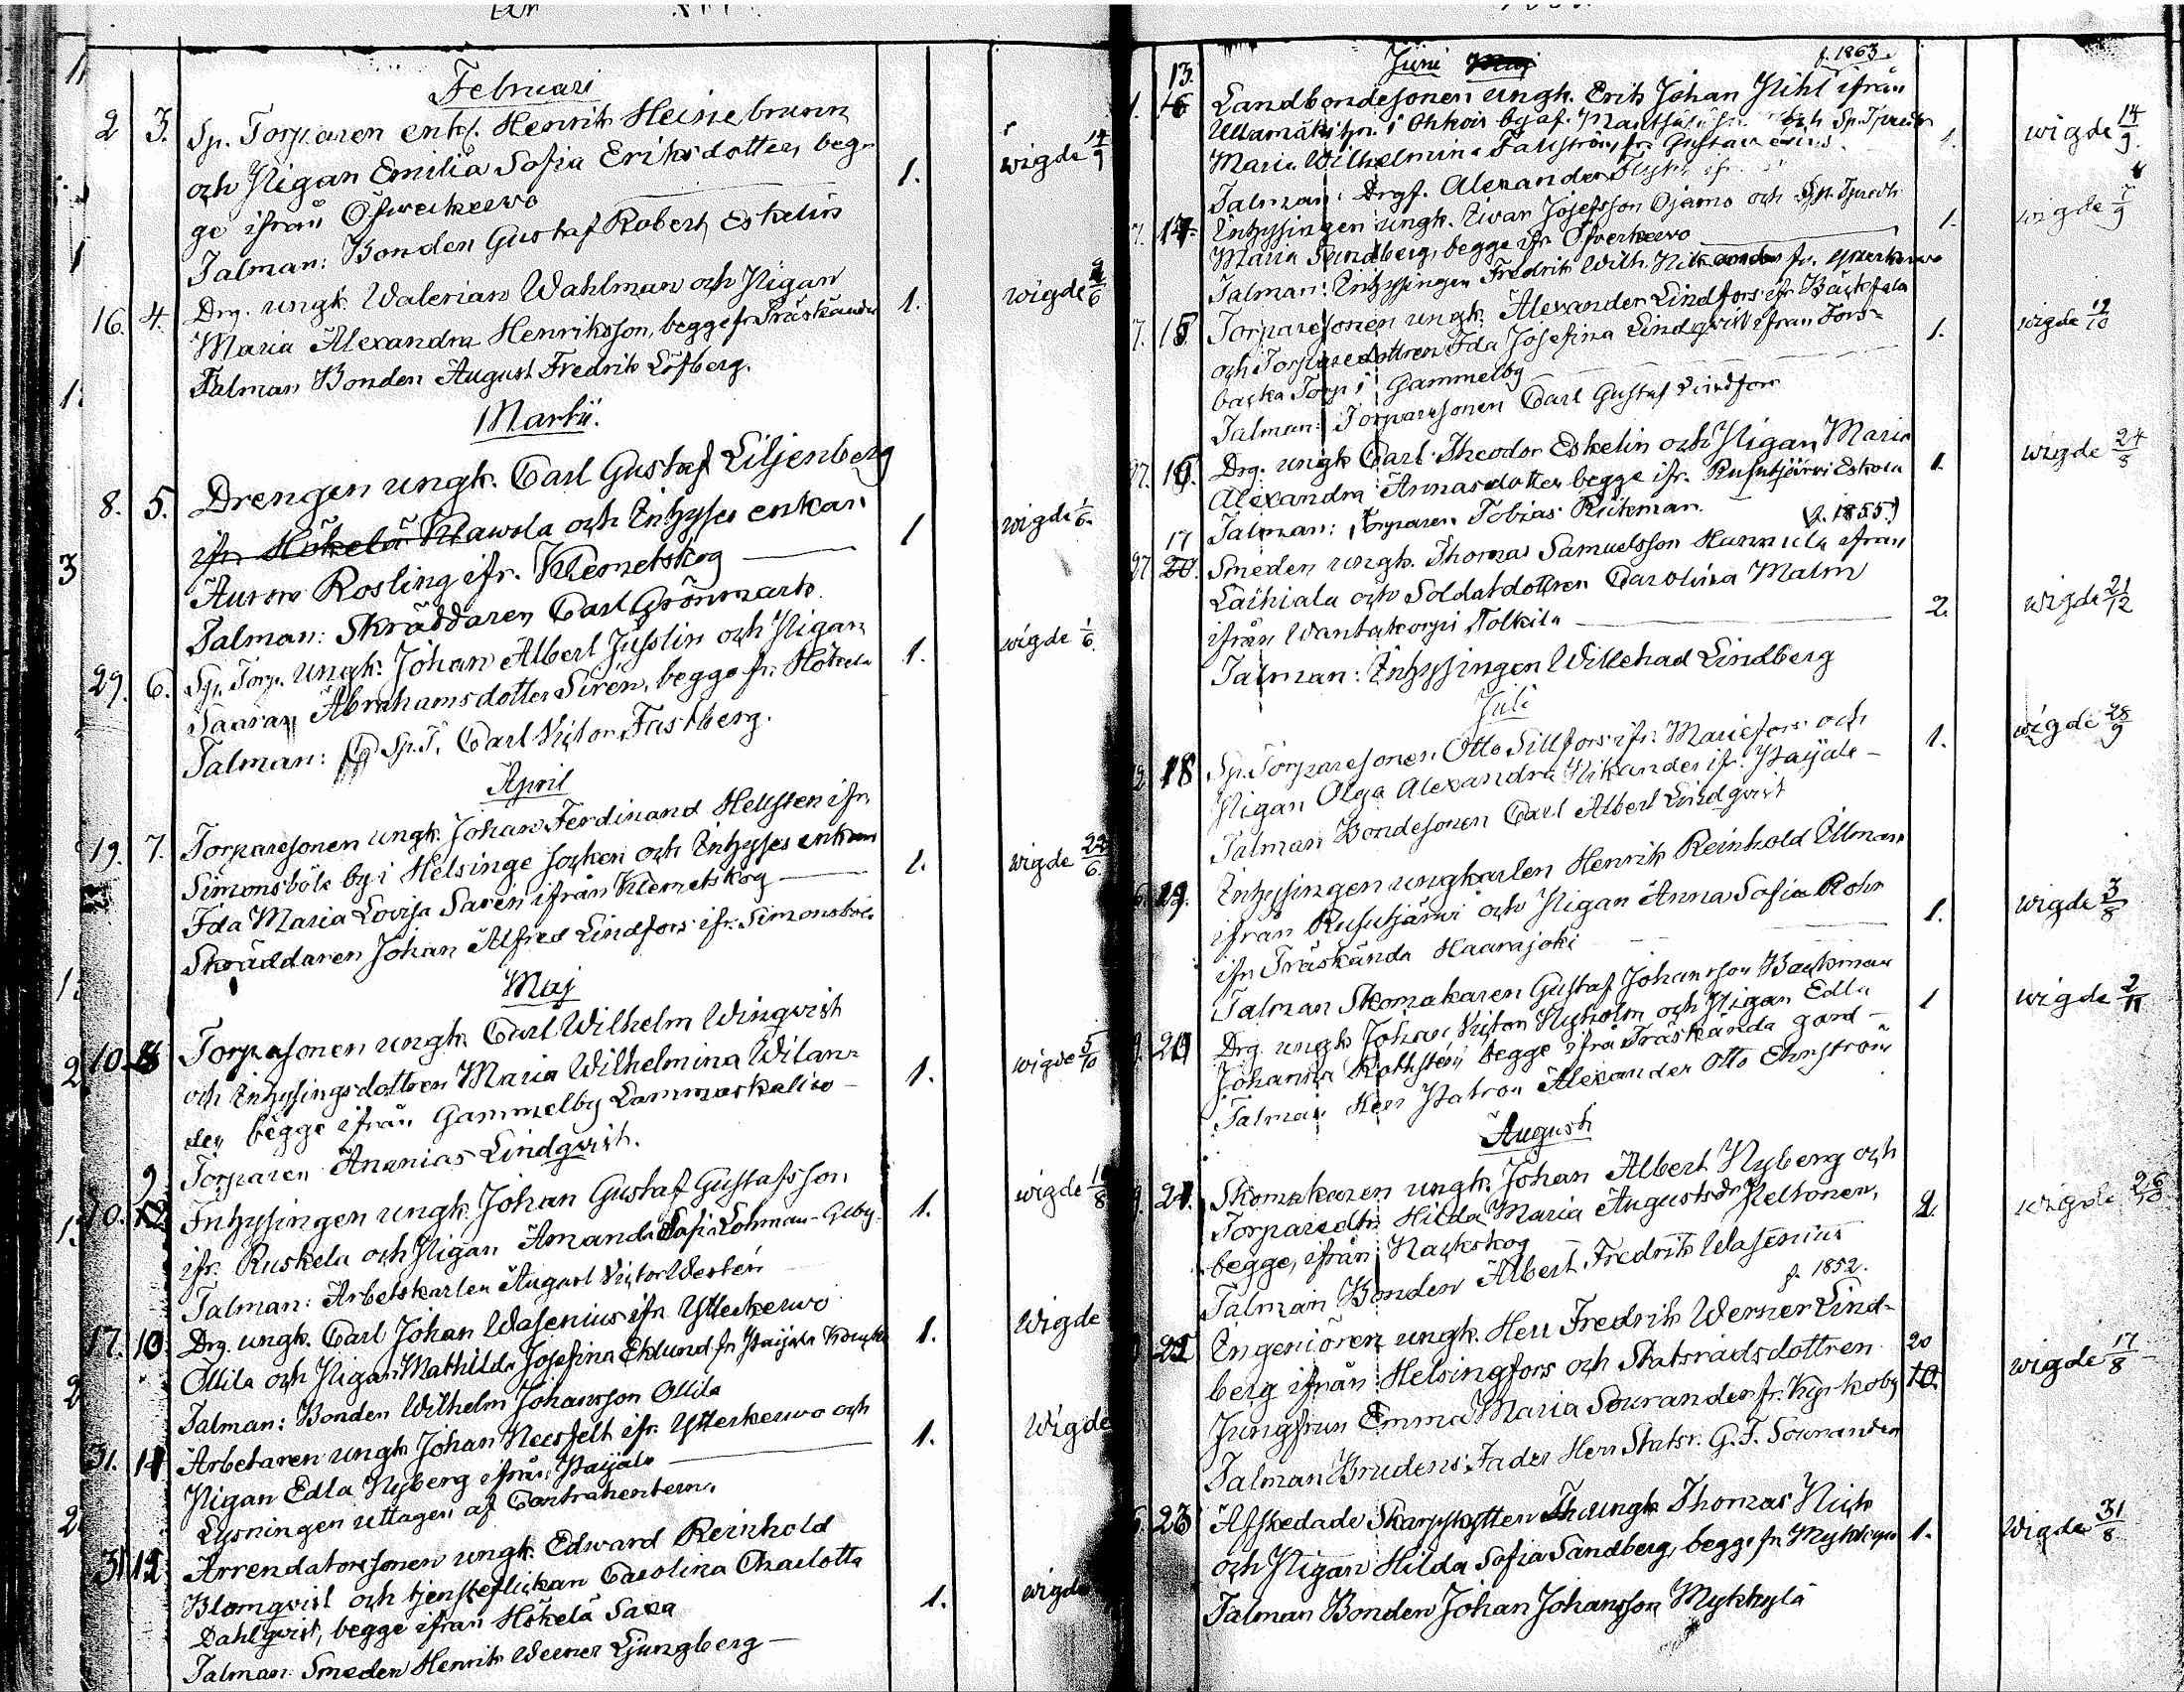 Februari
2 3. Sp. Torparen enkl. Henrik Heinebrunn
och Pigan Emilia Sofia Eriksdotter, beg-
ge ifrån Öfverkervo 1. wigde 14/9
Talman: Bonden Gustaf Robert Eskelin
16. 4. Drg. ungk. Walerian Wahlman och Pigan
Maria Alexandra Henriksson, begge fr Träskända 1. wigde /6
Talman Bonden August Fredrik Löfberg.
Martii.
8. 5. Drengen ungk. Carl Gustaf Liljenberg
ifr Hökelä Klawola och Inhyses enkan
Aurora Rosling ifr. Klemetskog 1 wigde 1/6.
Talman: Skräddaren Carl Grönmark.
29. 6. Sp. Torp. Ungk. Johan Albert Jusslin och Pigan
Saara Abrahamsdotter Siren, begge fr. Hökelä 1. wigde 1/6.
Talman: Sp. T. Carl Victor Fastberg.
April
19. 7. Torparesonen ungk. Johan Ferdinand Hellsten ifr.
Simonsböle by i Helsinge socken och Inhyses enkan
Ida Maria Lovisa Saren ifrån Klemetskog wigde 22/6
Skräddaren Johan Alfred Lindfors ifr. Simonsböle
Maj
10. 8 Torparesonen ungk. Carl Wilhelm Winqvist
och Inhysingsdottren Maria Wilhelmina Wilan-
der begge ifrån Gammelby Lammaskallio 1. wigde 5/10
Torparen Ananias Lindqvist.
9
10. 12 Inhysingen ungk. Johan Gustaf Gustafsson
ifr. Ruskela och Pigan Amanda Sofia Lohman-Geby. 1. wigde /8
Talman: Arbetskarlen August Victor Westén
17. 10 Drg. ungk. Carl Johan Wasenius ifr. Ytterkerwo
Ollila och Pigan Mathilda Josefina Eklund fr Paijala 1. wigde
Talman: Bonden Wilhelm Johansson Ollila
31. 11 Arbetaren ungk. Johan Neosfelt ifr. Ytterkerwo och
Pigan Edla Nyberg ifrån Paijala 1. Wigde
Lysningen uttagen af Contrahenterna.
31 12 Arrendatorssonen ungk. Edward Reinhold
Blomqvist och tjensteflickan Carolina Charlotta
Dahlqvist, begge ifrån Hökelä Saxa 1. wigde
Talman Smeden Henrik Werner Ljungberg
13. Juni Maj f. 1863.
16 Landbondesonen ungk. Erik Johan Pihl ifrån
i Ohkois by af och Sp. Tpredtr
Maria Wilhelmina Fallström, fr. Gustaf 1. wigde 14/9.
Talman: Drgf. Alexander
7. 14 Inhysingen ungk. Iivar Josefsson Ojamo och Sp. Tpredtr
Maria Sundberg, begge ifr Öfverkerwo 1. wigde /9
Talman: Inhysingen Fredrik Wilh. Nikander fr. Ytterkerwo
7. 15 Torparesonen ungk. Alexander Lindfors ifr Bäckfala
och Torparedottren Ida Josefina Lindqvist ifrån Fors-
backa Torp i Gammelby 1. wigde 12/10
Talman: Torparesonen Carl Gustaf Lindfors
27. 16. Drg. ungk Carl Theodor Eskelin och Pigan Maria
Alexandra Annasdotter begge ifr. Rusutjärvi Eskola 1. wigde 24/8
Talman: Torparen Tobias Rickman. (f. 1855.)
17
27 20. Smeden ungk. Thomas Samuelsson Hannula ifrån
Laihiala och Soldatdottren Carolina Malm
ifrån Wantakorpi Tolkila 2. wigde 21/12
Talman: Inhysingen Willehad Lindberg
Juli
18 Sp. Torparesonen Otto Sillfors ifr. Mariefors och
Pigan Olga Alexandra Nikander ifr. Paijala 1. wigde 28/9
Talman Bondesonen Carl Albert Lindqvist
19. Inhysingen ungkarlen Henrik Reinhold Ullman
ifrån Rusutjärwi och Pigan Anna Sofia Rohn
ifr Träskända Haarajoki 1. wigde 3/8
Talman Skomakaren Gustaf Johansson Backman
20 Drg. ungk Johan Victor Nyholm och Pigan Edla
Johanna Rothstén begge ifrå Träskända gård 1 wigde 2/11
Talman Herr Patron Alexander Otto Ehnström
August
21. Skomakaren ungk. Johan Albert Nyberg och
Torparedtr Hilda Maria Augustsdr Peltonen,
begge, ifrån Nackskog 2. wigde 26/10
Talman Bonden Albert Fredrik Wasenius
f. 1852.
22 Ingeniören ungk. Herr Fredrik Werner Lind-
berg ifrån Helsingfors och Statsrådsdottren 20
Jungfrun Emma Maria Sourander fr. Kyrkoby 10. wigde 17/8
Talman Brudens Fader Herr Statsr. G. F. Sourander
23 Afskedade Skarpskytten ungk Thomas Nick
och Pigan Hilda Sofia Sandberg, begge fr Mykkylä 1. Wigde 31/8
Talman Bonden Johan Johansson Mykkylä